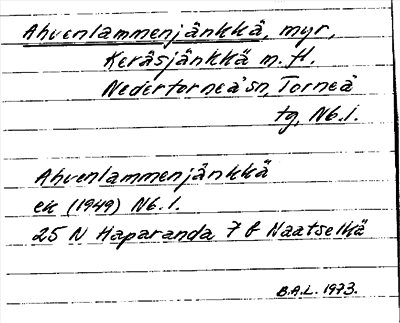 Ahvenlammenjänkkä, myr,
Keräsjänkkä m. fl.
Nedertorneå sn, Torneå
tg, Nb.l.
Ahvenlammenjänkkä
ek (1949) Nb.l.
25 N Haparanda 7 b Naatselkä
B.A.L. 1973.